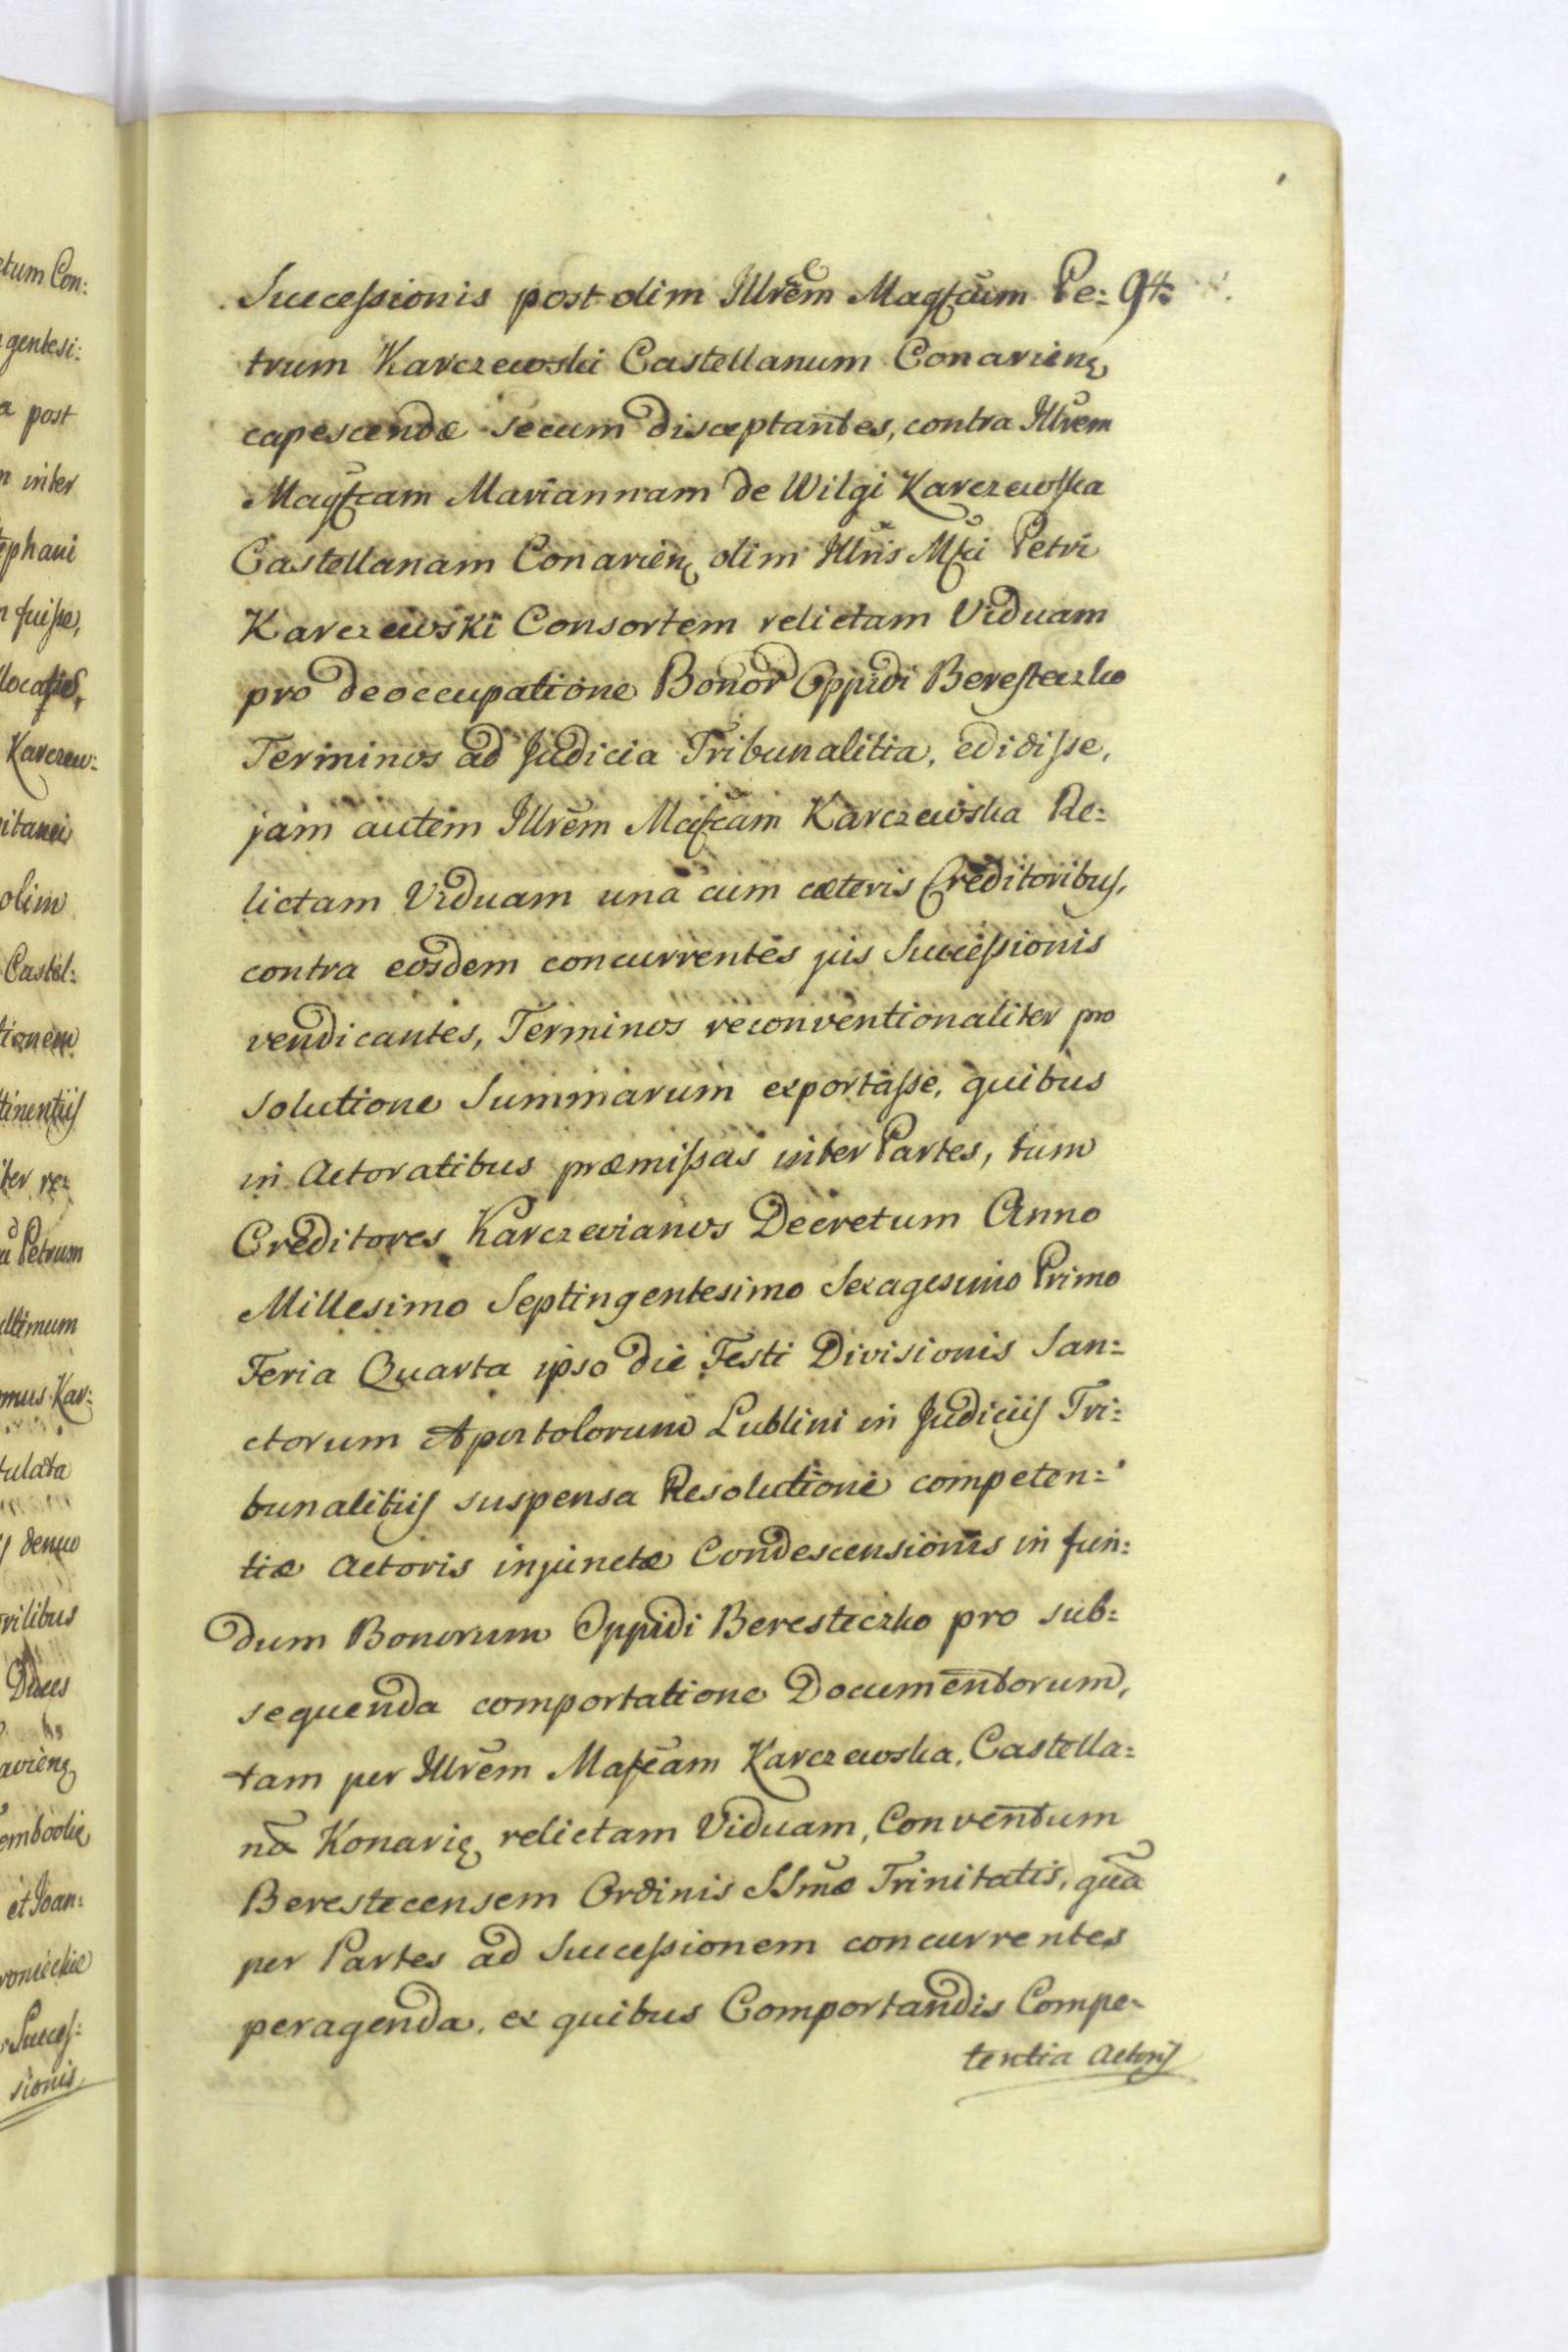 etum Con:
gentesi:
a post
n inter
tephani
n fuisse,
Karczew:
itanei
olim
Castel:
tionem
tinentijs
iter re:
u Petrum
ultimum
mus Kar:
tulata
j denuo
vilibus
Duces
et Joan:
Succes:
sionis
Successionis post olim Illrēm Magfcūm Pe: 94.
trum Karczewski Castellanum Conarieñ
capescendæ secum disceptantes, contra Illrēm
Magfcam Mariannam de Wilgi Karczewska
Castellanam Conarieñ olim Illris Mfci Petri
Karczewski Consortem relictam Viduam
pro deoccupatione Bonor Oppidi Beresteczko
Terminos ad Judicia Tribunalitia, edidisse,
jam autem Illrēm Mafcam Karczewska Re:
lictam Viduam una cum cæteris Creditoribus,
contra eosdem concurrentes jus Successionis
vendicantes, Terminos reconventionaliter pro
solutione Summarum exportasse, quibus
in Actoratibus præmissas inter Partes, tum
Creditores Karczevianos Decretum Anno
Millesimo Septingentesimo Sexagesimo Primo
Feria Quarta ipso die Festi Divisionis San:
ctorum Apostolorum Lublini in Judicijs Tri:
bunalitijs suspensa Resolutione competen:
tiæ Actoris injunctæ Condescensionis in fun:
dum Bonorum Oppidi Beresteczko pro sub:
sequenda comportatione Documentorum,
tam per Illrēm Mafcam Karczewska, Castella:
nā Konarię relictam Viduam, Conventum
Berestecensem Ordinis SSmæ Trinitatis, quā
per Partes ad Successionem concurrentes
peragenda, ex quibus Comportandis Compe-
tentia Actoris